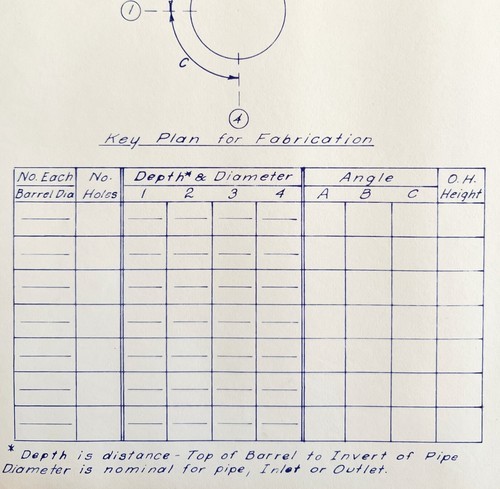 1
C
4
Key Plan for Fabrication
No. Each No. Depth* & Diameter Angle O.H.
Barrel Dia Holes 1 2 3 4 A B C Height
* Depth is distance - Top of Barrel to Invert of Pipe
Diameter is nominal for pipe, Inlet or Outlet.